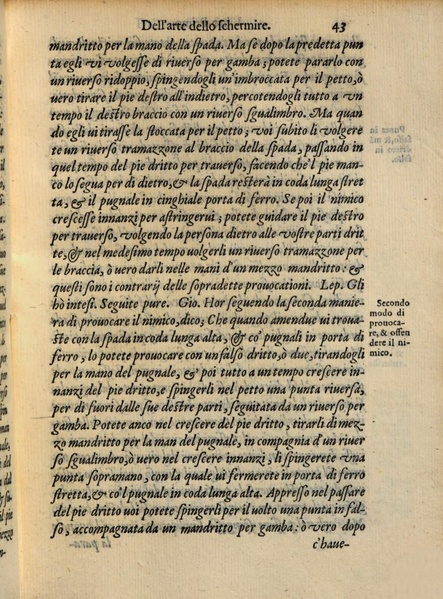 Dell'arte dello schermire. 43
mandritto per la mano della spada. Ma se dopo la predetta pun
ta egli vi volgesse di riuerso per gamba; potete pararlo con
un riuerso ridoppio, spingendogli un'imbroccata per il petto, ò
vero tirare il pie destro all'indietro, percotendogli tutto a un
tempo il destro braccio con un riuerso sgualimbro. Ma quan
do egli ui tirasse la stoccata per il petto; voi subito li volgere
te un riuerso tramazzone al braccio della spada, passando in
quel tempo del pie dritto per trauerso, facendo che'l pie man-
co lo segua per di dietro, & la spada resterà in coda lunga stret
ta, & il pugnale in cinghiale porta di ferro. Se poi il nimico
crescesse innanzi per astringerui; potete guidare il pie destro
per trauerso, volgendo la persona dietro alle vostre parti drit
te, & nel medesimo tempo volgerli un riuerso tramazzone per
le braccia, ò uero darli nelle mani d'un mezzo mandritto: &
questi sono i contrarij delle sopradette prouocationi. Lep. Gli
hò intesi. Seguite pure. Gio. Hor seguendo la seconda manie-
ra di prouocare il nimico, dico; Che quando amendue ui troua-
ste con la spada in coda lunga alta, & co' pugnali in porta di
ferro, lo potete prouocare con un falso dritto, ò due, tirandogli
per la mano del pugnale, & poi tutto a un tempo crescere in-
nanzi del pie dritto, e spingerli nel petto una punta riuersa,
per di fuori dalle sue destre parti, seguitata da un riuerso per
gamba. Potete anco nel crescere del pie dritto, tirarli di mez-
zo mandritto per la man del pugnale, in compagnia d'un riuer
so sgualimbro, ò uero nel crescere innanzi, li spingerete una
punta sopramano, con la quale ui fermerete in porta di ferro
stretta, & co'l pugnale in coda lunga alta. Appresso nel passare
del pie dritto uoi potete spingerli per il volto una punta in fal-
so, accompagnata da un mandritto per gamba: ò vero dopo
c'haue-
Secondo
modo di
prouoca-
re, & offen
dere il ni-
mico.